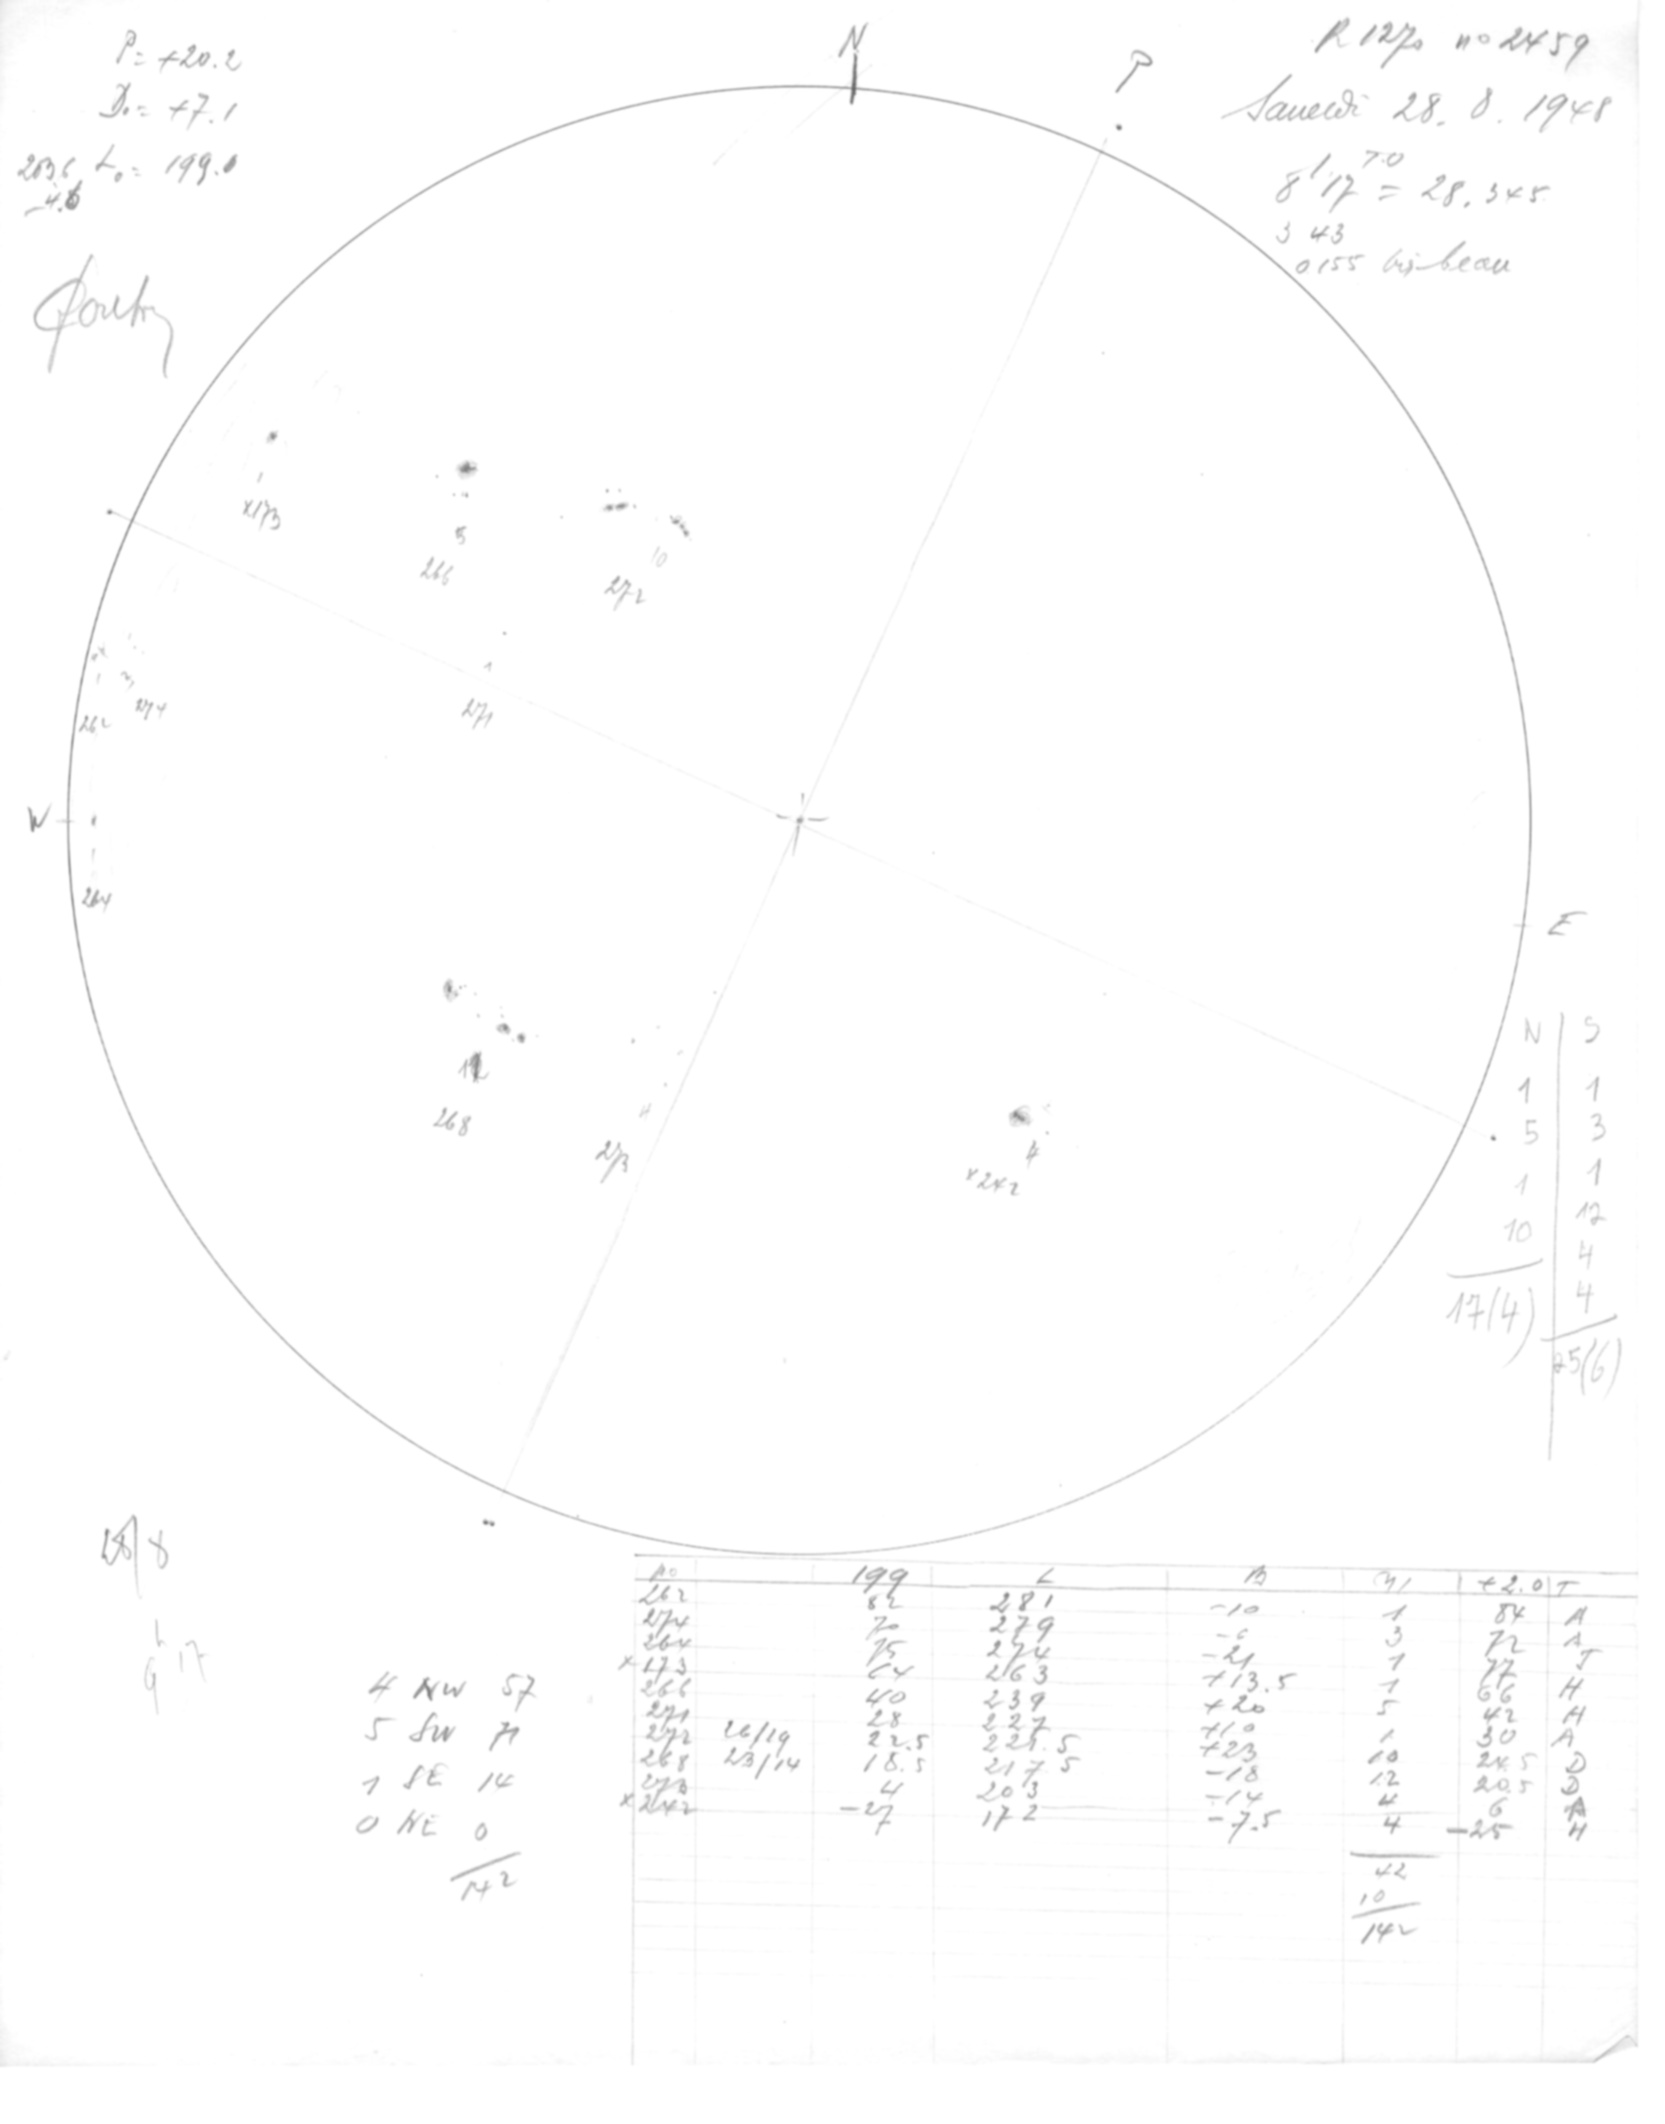 P = +20.2
D₀ = +7.1
203.6 L₀ = 199.0
-4.6
N
P
R 1270 nº 2459
Samedi 28. 8. 1948
8 17 TO = 28.345
3 43
0155 bis beau
1
x173
5
266
10
272
1
262
3
274
1
271
W
1
264
E
12
268
4
273
4
x242
N S
1 1
5 3
1 1
10 12
4
17(4) 4
25(6)
4 NW 57
5 SW 71
1 SE 14
0 NE 0
142
no 199 L B +2.0 T
262 82 281 -10 1 84 A
274 70 279 -6 3 72 A
264 75 274 -21 1 77 J
x173 64 263 +13.5 1 66 H
266 40 239 +20 5 42 H
271 28 227 +10 1 30 A
272 26/19 22.5 221.5 +23 10 24.5 D
268 23/14 18.5 217.5 -18 12 20.5 D
273 4 203 -14 4 6 A
x242 -27 172 -7.5 4 -25 H
42
10
142